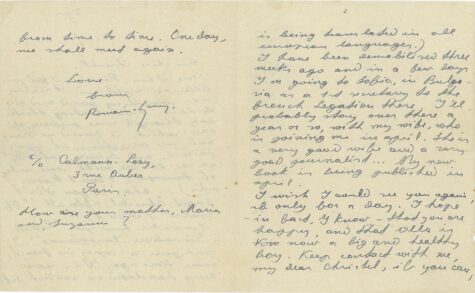 from time to time. One day,
we shall meet again.
Love
from
Romain Gary.
c/o Calmann-Levy,
3 rue Auber
Paris
How are your mother, Maria
and Suzanne ?
is being translated in all
european languages.)
I have been demobilised three
weeks ago and in a few days
I'm going to Sofia, in Bulga-
ria as a 1st secretary to the
french Legation there. I'll
probably stay over there a
year or so, with my wife, who
is joining me in april. She is
a very good wife and a very
good journalist... My new
book is being published in
april.
I wish I could see you again,
if only for a day. I hope
- in fact, I know - that you are
happy, and that Ulla is
now a big and healthy
boy. Keep contact with me,
my dear Christel, if you can,